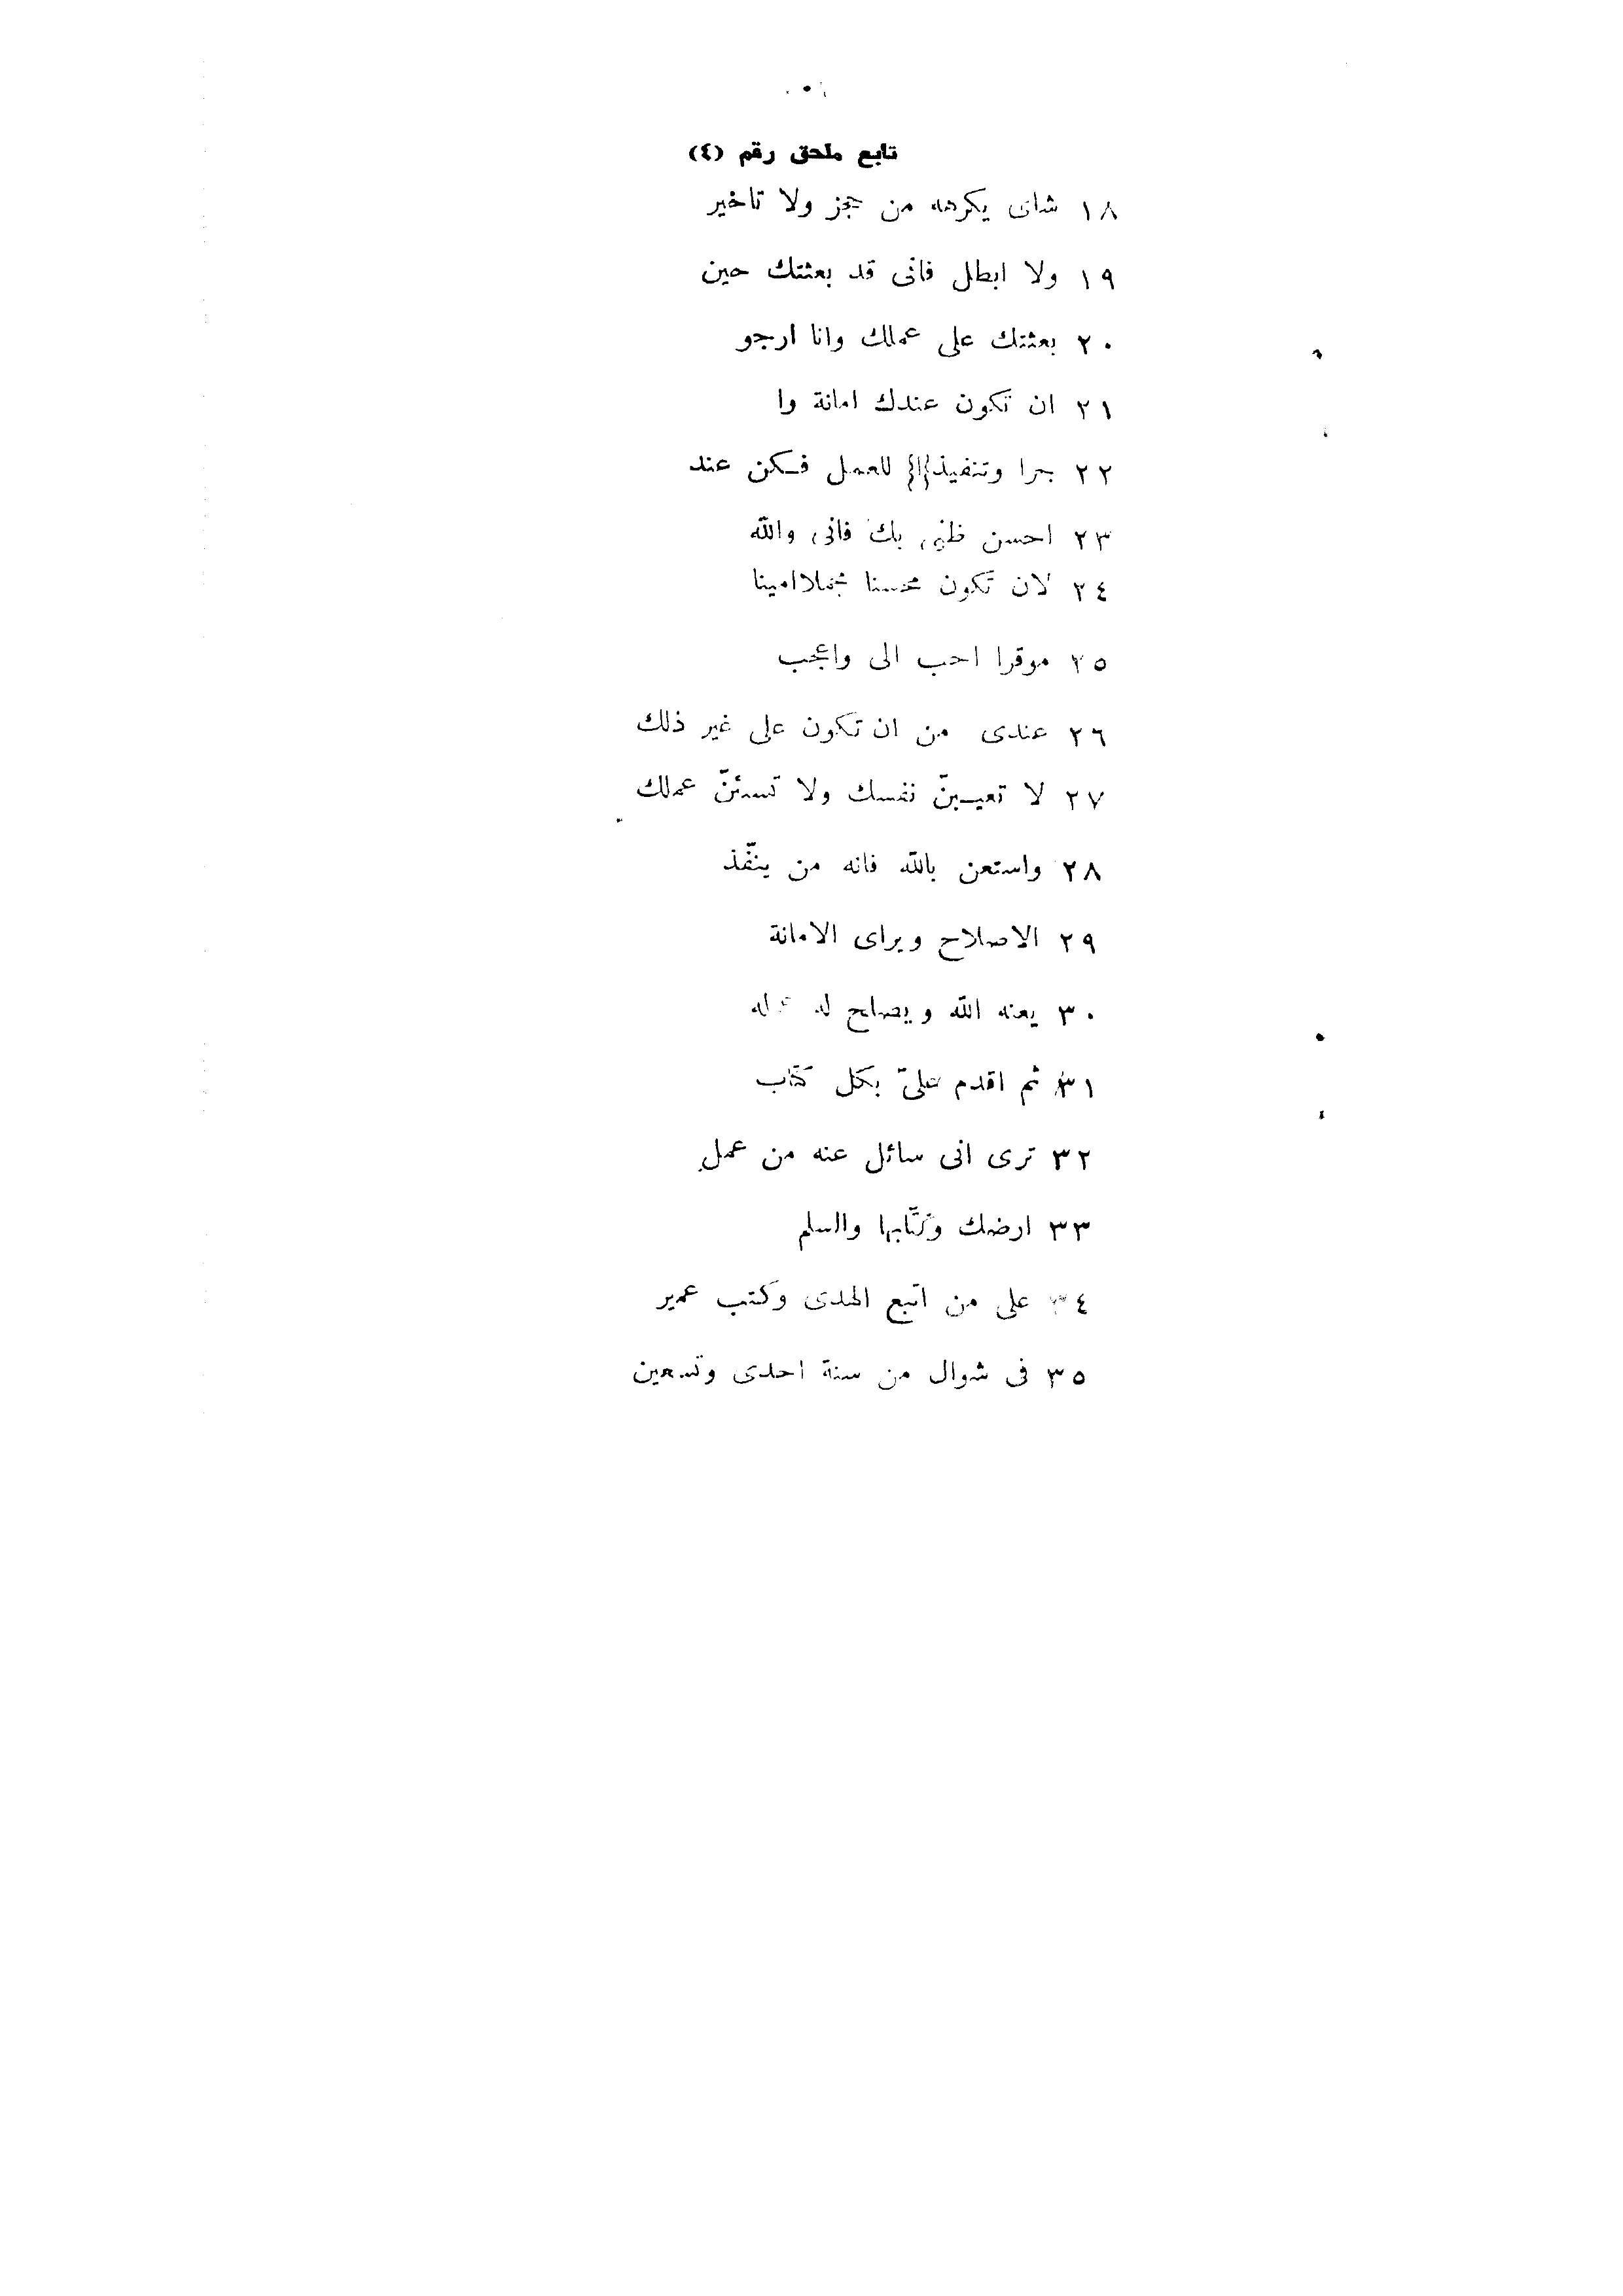 تابع ملحق رقم (٤)
١٨ شاى يكرهه من عجز ولا تاخير
١٩ ولا ابطل فانى قد بعثتك حين
٢٠ بعثتك على عملك وانا ارجو
٢١ ان تكون عندك امانة وا
٢٢ جرا وتنفيذا للعمل فكن عند
٢٣ احسن ظنى بك فانى والله
٢٤ لان تكون محسنا مجملا امينا
٢٥ موقرا احب الى واعجب
٢٦ عندى من ان تكون على غير ذلك
٢٧ لا تعيبنّ نفسك ولا تسئنّ عملك
٢٨ واستعن بالله فانه من ينفّذ
٢٩ الاصلاح ويراى الامانة
٣٠ يعنه الله ويصلح له
٣١ ثم اقدم علىّ بكل كتاب
٣٢ ترى انى سائل عنه من عمل
٣٣ ارضك وكتّابها والسلم
٣٤ على من اتبع الهدى وكتب عمير
٣٥ فى شوال من سنة احدى وتسعين